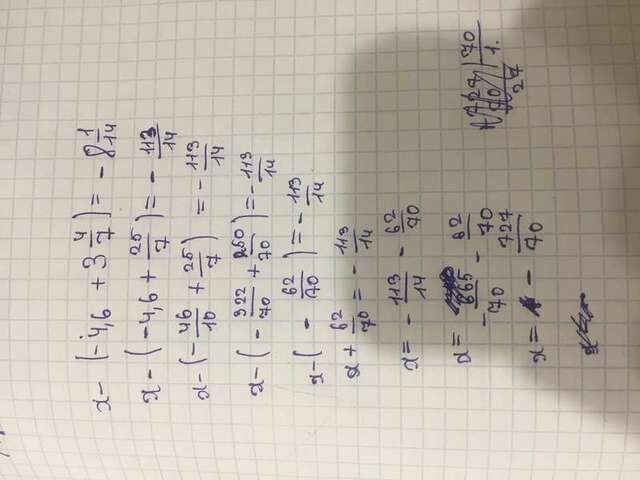 x - (-4,6 + 3 4/7) = - 8 1/14
x - (-4,6 + 25/7) = - 113/14
x - (- 46/10 + 25/7) = - 113/14
x - (- 322/70 + 250/70) = - 113/14
x - ( - 62/70 ) = - 113/14
x + 62/70 = - 113/14
x = - 113/14 - 62/70
x = - 665/70 - 62/70
x = - 727/70
727 | 70
70 | 1.
27